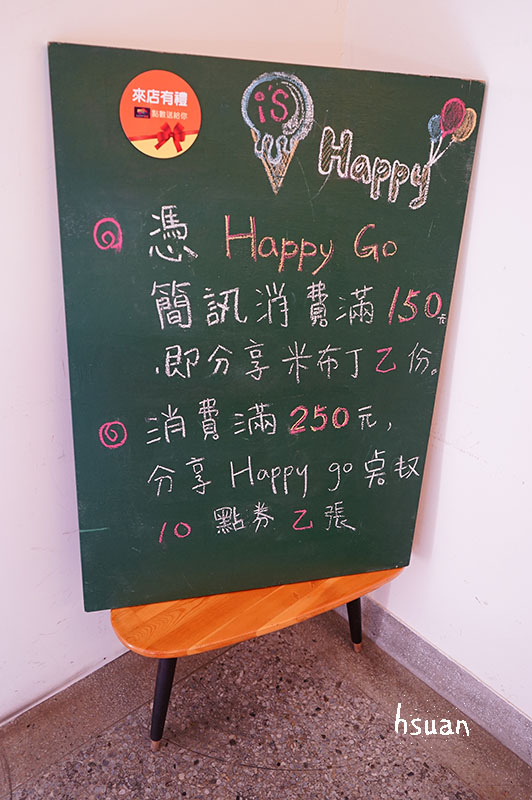 來店有禮
點數送給你
i's
Happy
憑 Happy Go
簡訊消費滿150元
即分享米布丁乙份。
消費滿250元，
分享Happy go 桌杈
10 點券乙張
hsuan